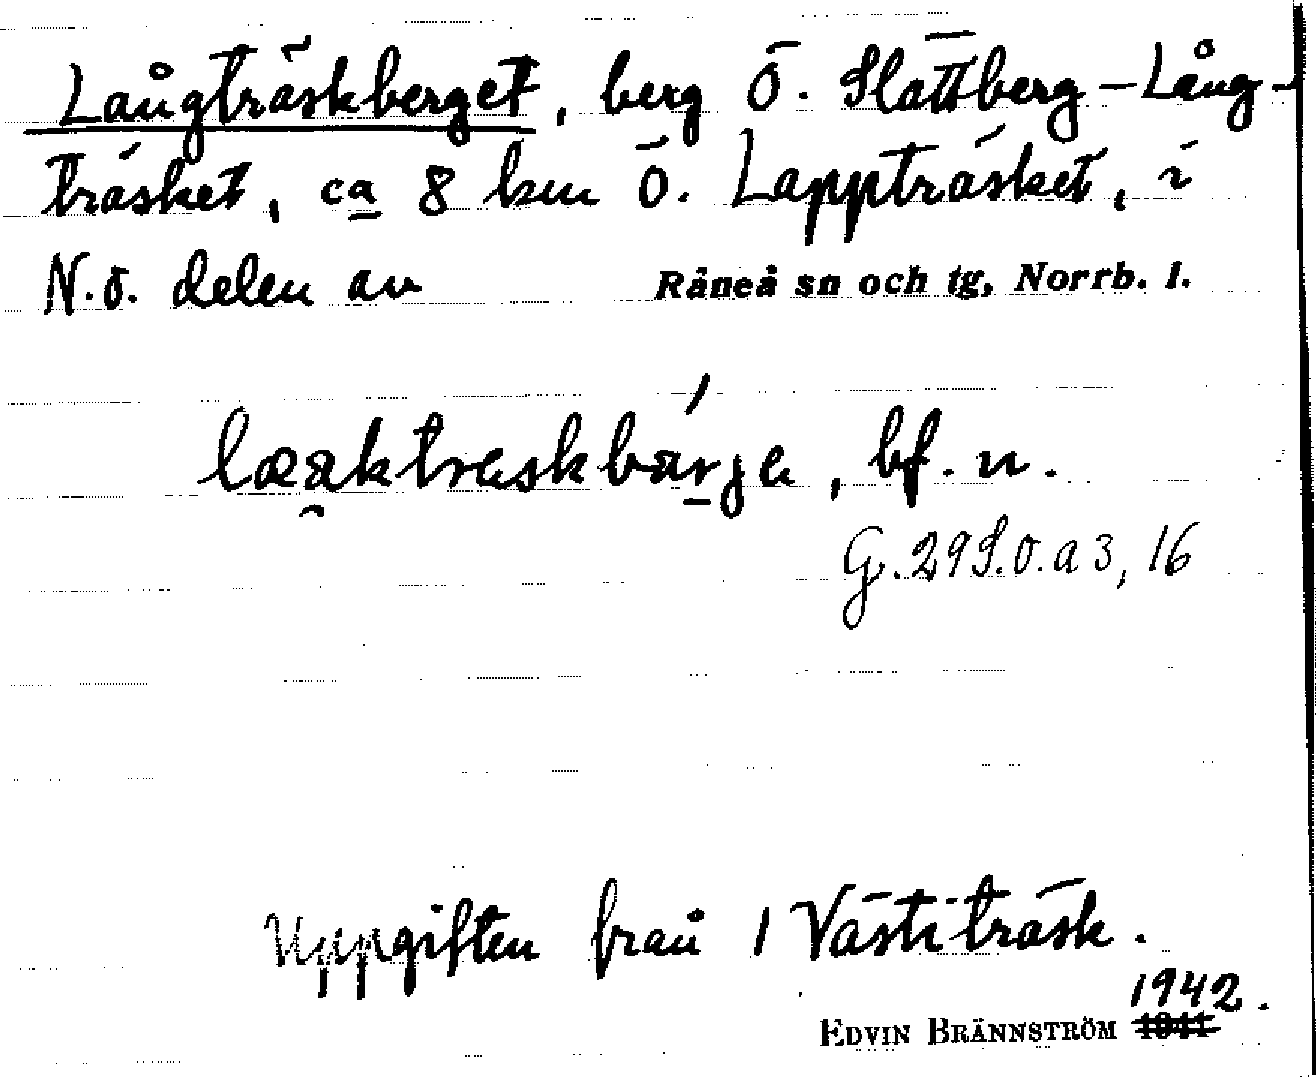 Långträskberget, berg Ö. Slättberg-Lång-
träsket, ca 8 km Ö. Lappträsket, i
N.ö. delen av Råneå sn och tg, Norrb. l.
læaktræskbärje, bf. n.
G. 29S.Ö.a3, 16
Uppgiften från 1 Västiträsk.
1942.
EDVIN BRÄNNSTRÖM 1941